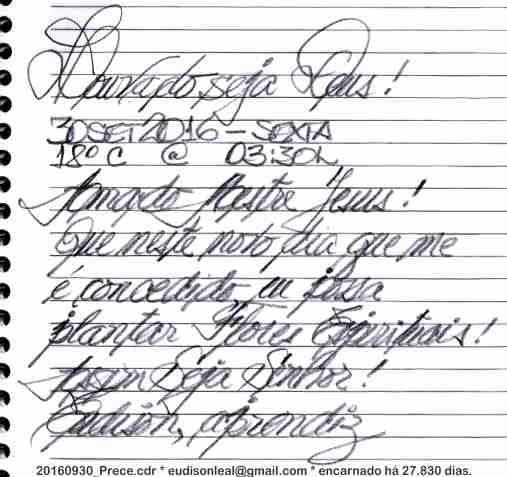 Louvado seja Deus!
30SET2016 - SEXTA
18º C @ 03:30h
Amado Mestre Jesus!
Que neste novo dia que me
é concedido, eu possa
plantar Flores Espirituais!
Assim Seja Senhor!
Eudison, aprendiz
20160930_Prece.cdr * eudisonleal@gmail.com * encarnado há 27.830 dias.